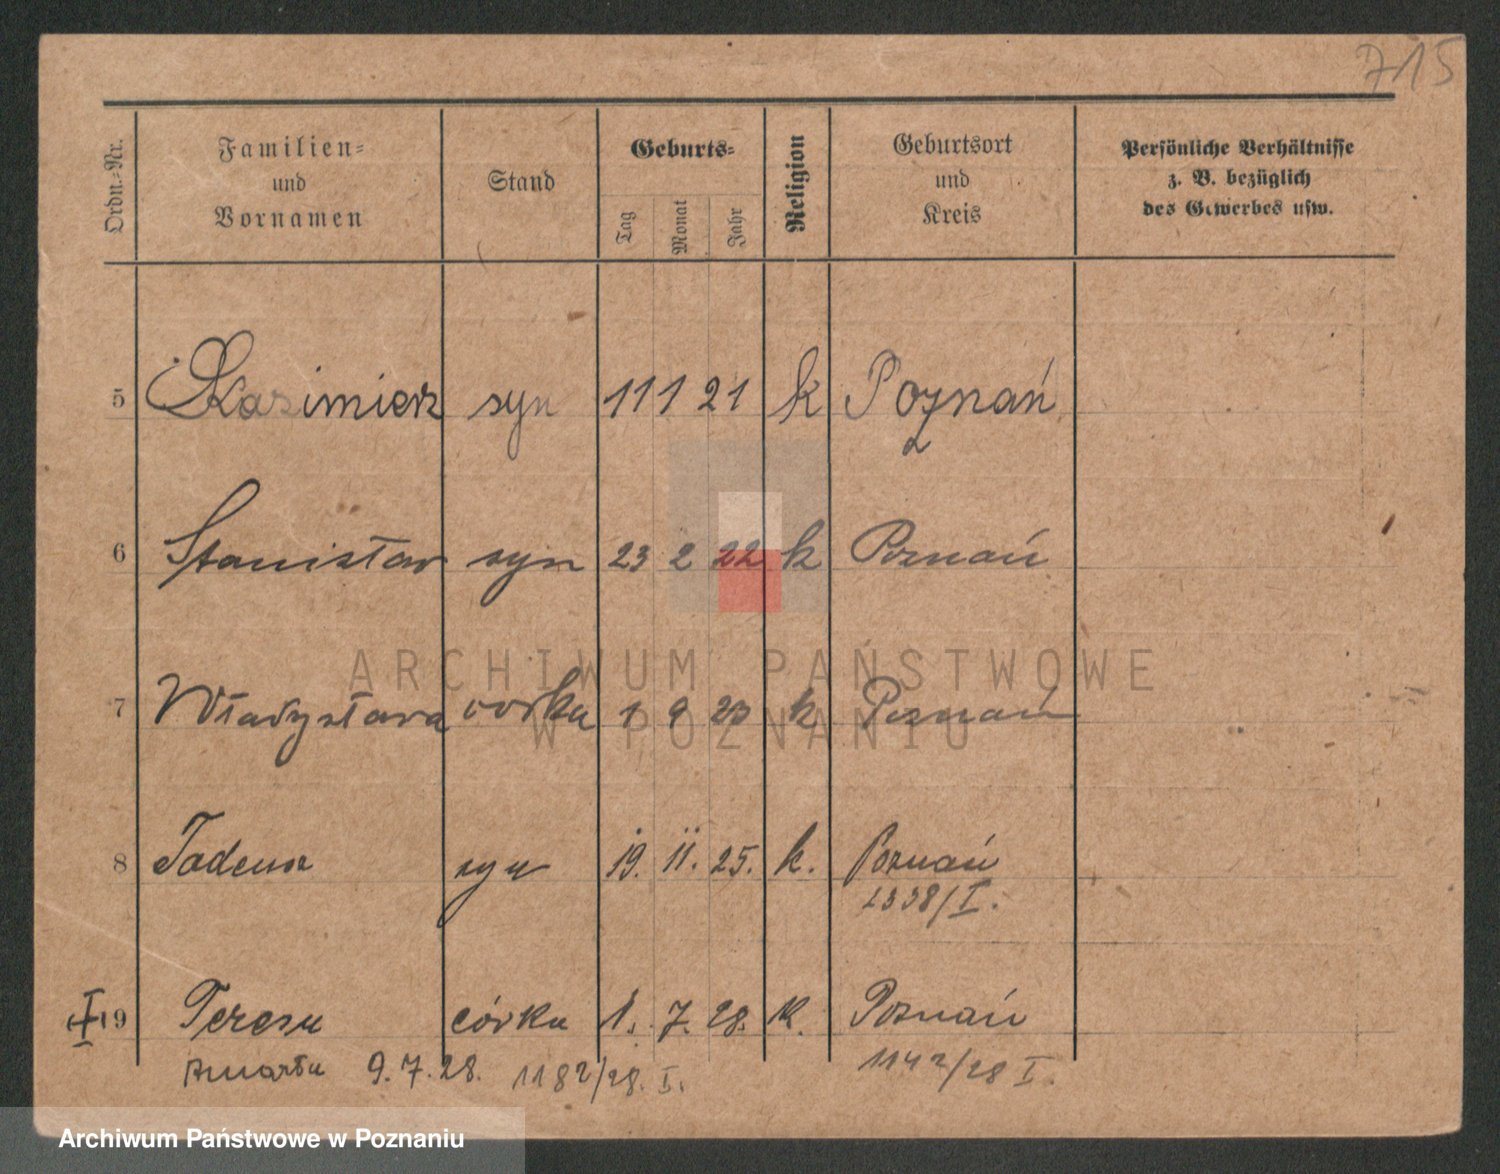 715
Ordn.-Nr. Familien- und Vornamen Stand Geburts- Tag Monat Jahr Religion Geburtsort und Kreis Persönliche Verhältnisse z. B. bezüglich des Gewerbes usw.
5 Kazimierz syn 11 1 21 k Poznań
6 Stanisław syn 23 2 22 k Poznań
ARCHIWUM PAŃSTWOWE
7 Władysława córka 1 9 23 k Poznań
W POZNANIU
8 Tadeusz syn 19. 11. 25. k. Poznań
2338/I.
9 Teresa córka 1. 7. 28. k. Poznań
zmarła 9.7.28. 1182/28. I. 1142/28 I.
Archiwum Państwowe w Poznaniu